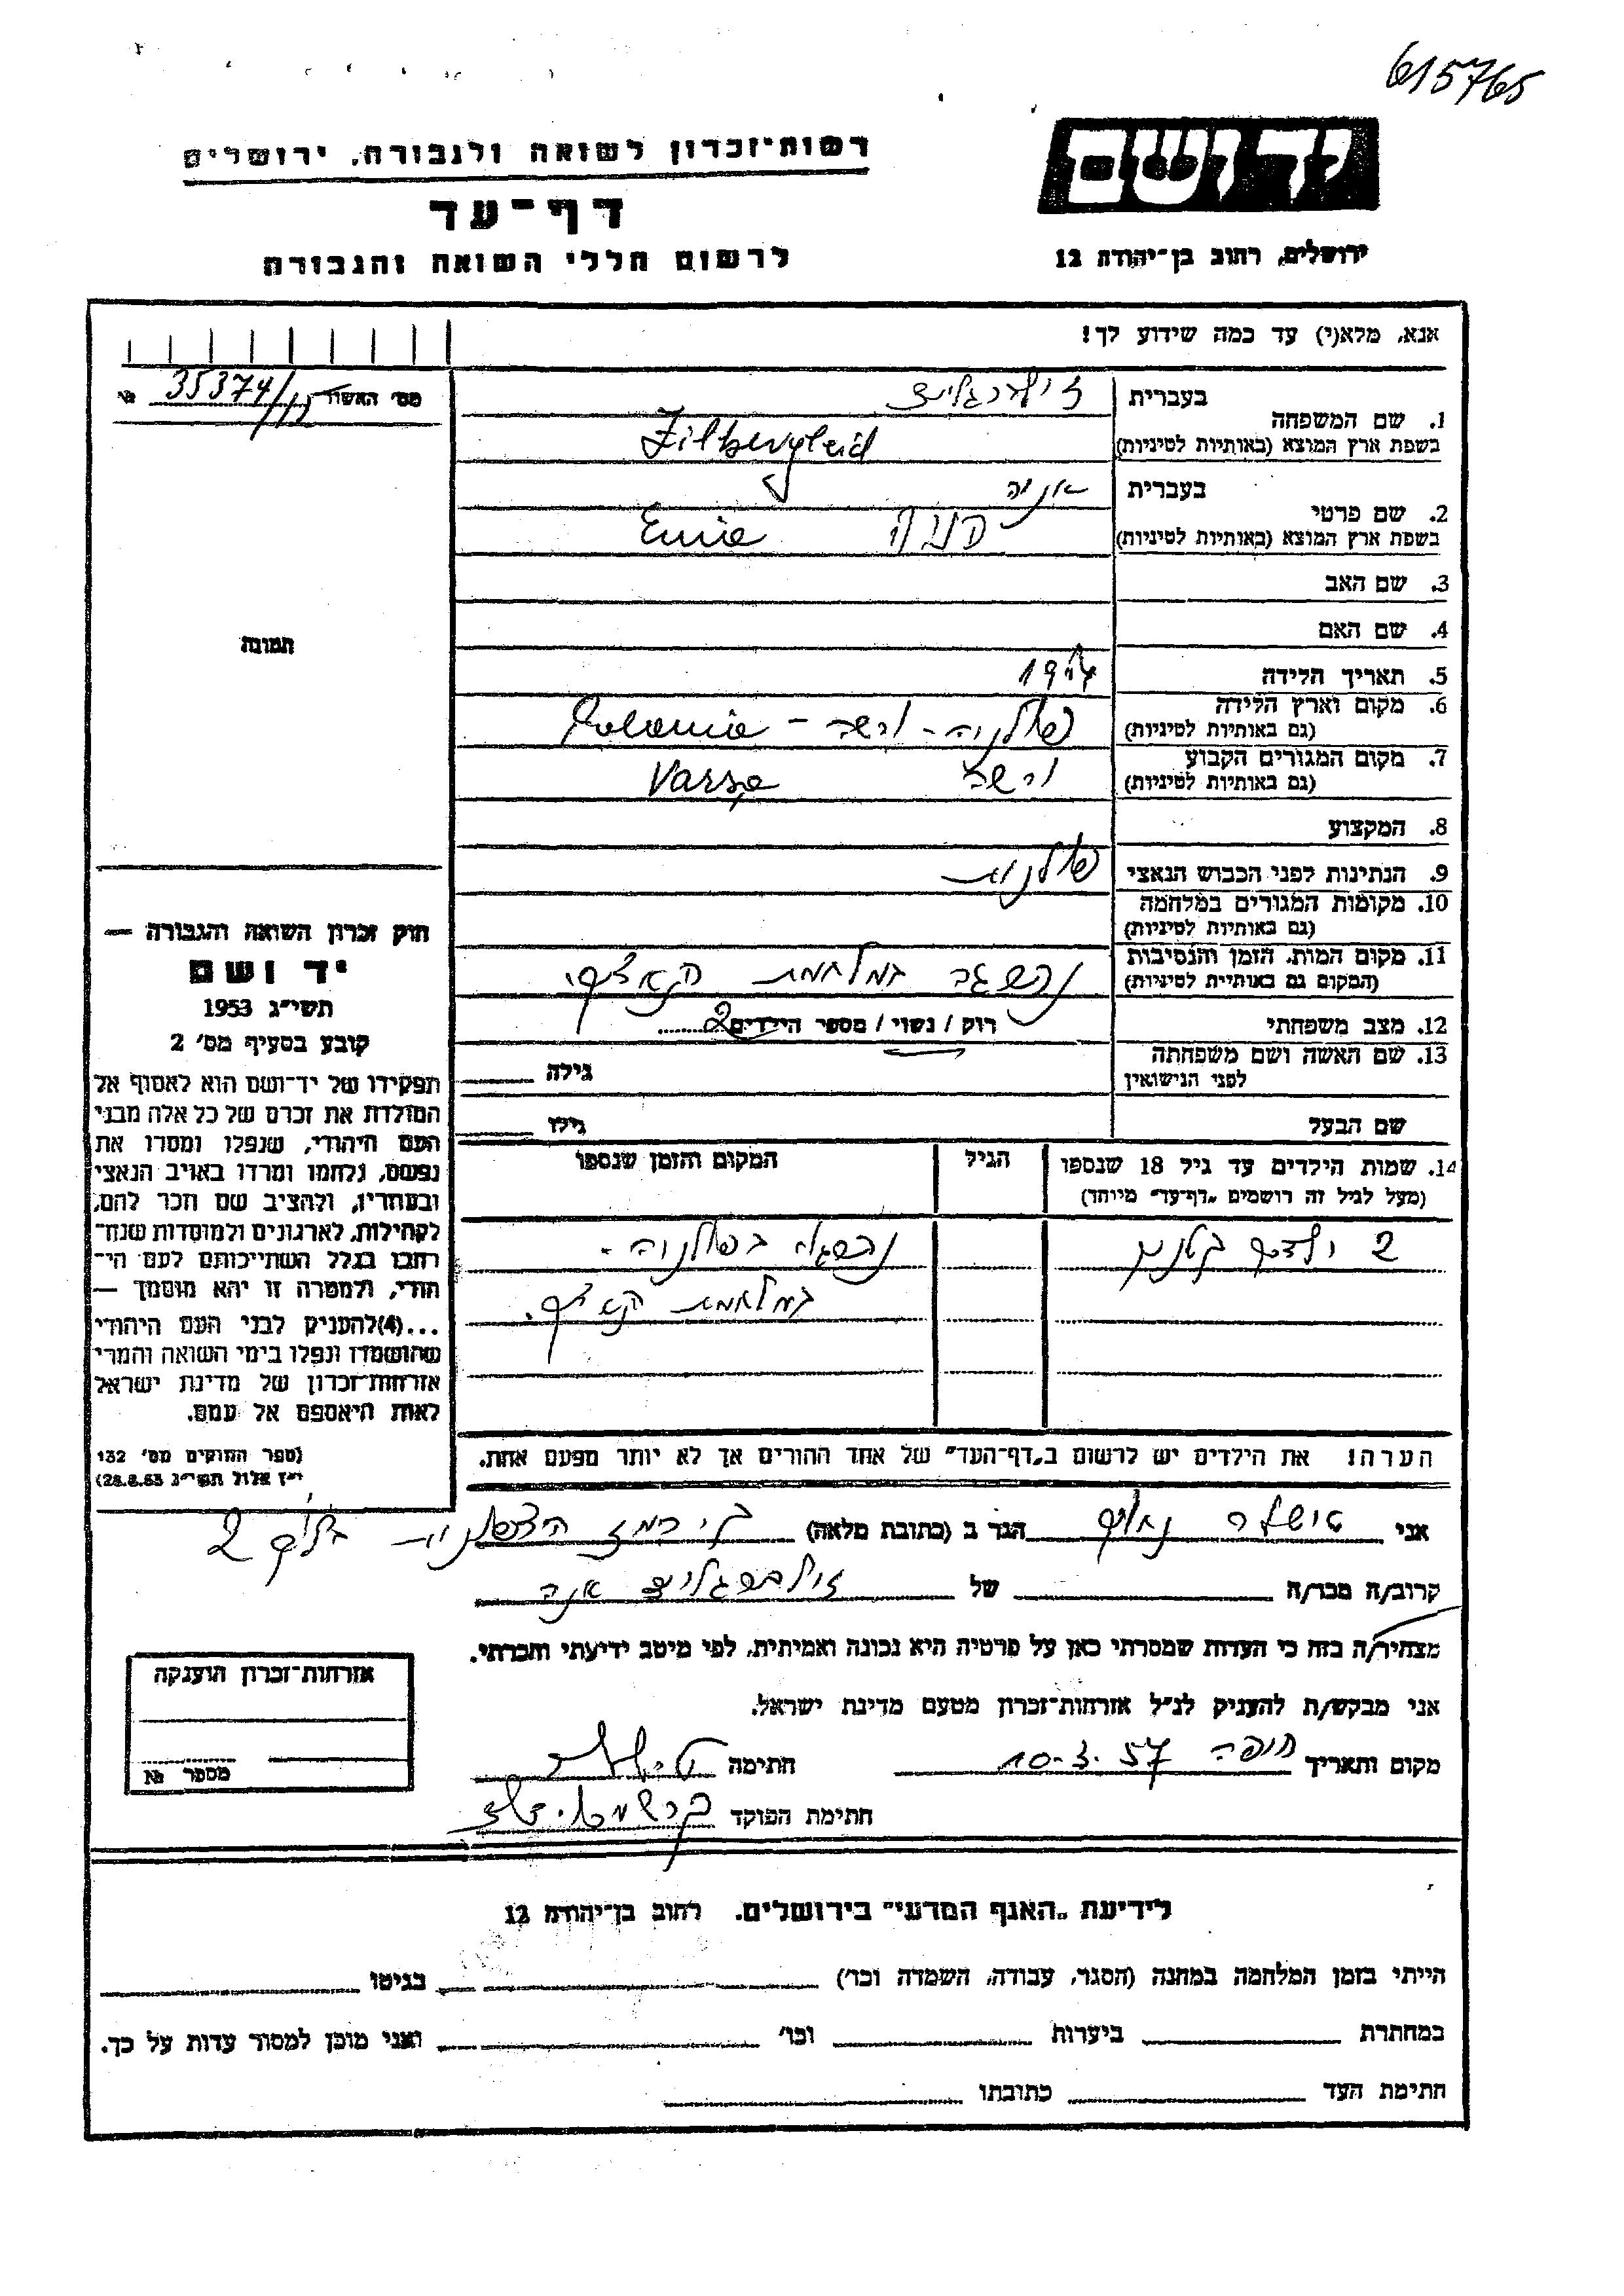 615765
יד ושם
ירושלים, רחוב בן־יהודה 12
רשות־זכרון לשואה ולגבורה, ירושלים
דף־עד
לרשום חללי השואה והגבורה
אנא, מלא(י) עד כמה שידוע לך!
מס' האשור 35374/15 №
תמונה
1. שם המשפחה
בעברית
בשפת ארץ המוצא (באותיות לטיניות) Zilbergleid
2. שם פרטי
בעברית
בשפת ארץ המוצא (באותיות לטיניות)
3. שם האב
4. שם האם
5. תאריך הלידה
6. מקום וארץ הלידה פולניה - ורשה - Polonia
(גם באותיות לטיניות)
7. מקום המגורים הקבוע ורשה Varsa
(גם באותיות לטיניות)
8. המקצוע
9. הנתינות לפני הכבוש הנאצי פולנית
10. מקומות המגורים במלחמה
(גם באותיות לטיניות)
11. מקום המות, הזמן והנסיבות במלחמת הנאצים.
(המקום גם באותיית לטיניות)
12. מצב משפחתי רוק / נשוי / מספר הילדים 2
13. שם האשה ושם משפחתה
לפני הנישואין גילה
שם הבעל גילו
14. שמות הילדים עד גיל 18 שנספו
(מעל לגיל זה רושמים „דף־עד" מיוחד)
הגיל
המקום והזמן שנספו
2 ילדים קטנים בפולניה -
במלחמת הנאצים.
הערה! את הילדים יש לרשום ב„דף־העד" של אחד ההורים אך לא יותר מפעם אחת.
חוק זכרון השואה והגבורה —
יד ושם
תשי"ג 1953
קובע בסעיף מס' 2
תפקידו של יד־ושם הוא לאסוף אל
המולדת את זכרם של כל אלה מבני
העם היהודי, שנפלו ומסרו את
נפשם, נלחמו ומרדו באויב הנאצי
ובעוזריו, ולהציב שם וזכר להם,
לקהילות, לארגונים ולמוסדות שנח־
רבו בגלל השתייכותם לעם הי־
הודי, ולמטרה זו יהא מוסמך —
...(4)להעניק לבני העם היהודי
שהושמדו ונפלו בימי השואה והמרי
אזרחות־זכרון של מדינת ישראל
לאות היאספם אל עמם.
(ספר החוקים מס' 132
י"ז אלול תשי"ג 28.8.53)
אני הגר ב (כתובת מלאה) 2
קרוב/ה מכר/ה של
מצהיר/ה בזה כי העדות שמסרתי כאן על פרטיה היא נכונה ואמיתית, לפי מיטב ידיעתי והכרתי.
אני מבקש/ת להעניק לנ"ל אזרחות־זכרון מטעם מדינת ישראל.
מקום ותאריך חיפה 10-3-57 חתימה
חתימת הפוקד
אזרחות־זכרון הוענקה
מספר №
לידיעת „האגף המדעי" בירושלים. רחוב בן־יהודה 12
הייתי בזמן המלחמה במחנה (הסגר, עבודה, השמדה וכו') בגיטו
במחתרת ביערות וכו' ואני מוכן למסור עדות על כך.
חתימת העד כתובתו